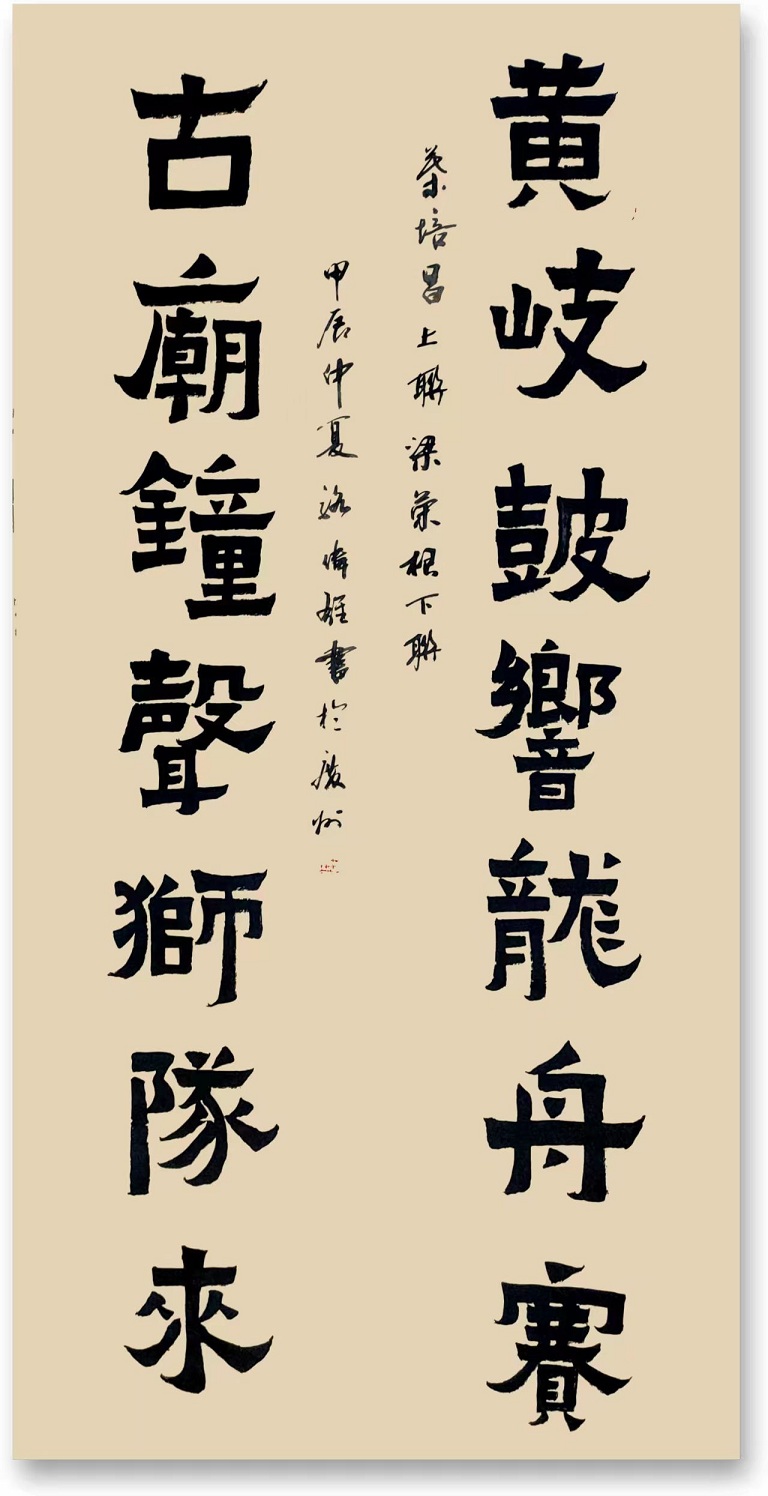 黄岐鼓響龍舟賽
蔡培昌上聯梁榮根下聯
甲辰仲夏 偉雄書於廣州
古廟鐘聲獅隊來